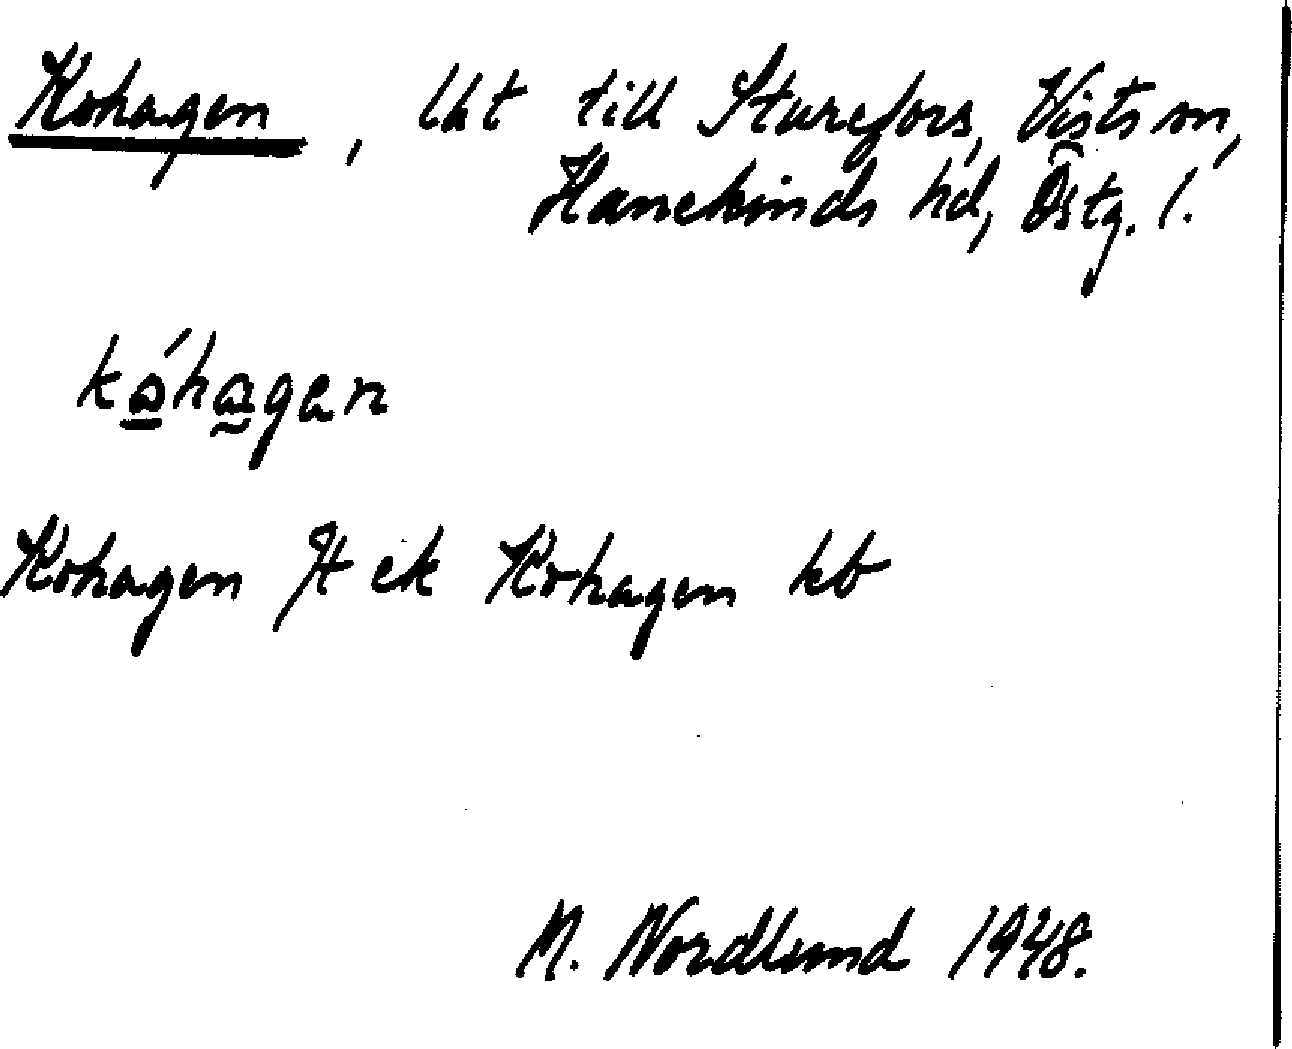 Kohagen, lht till Sturefors, Vists sn,
Hanekinds hd, Östg. l.
kóhagen
Kohagen Jt ek Kohagen kb
M. Nordlund 1948.